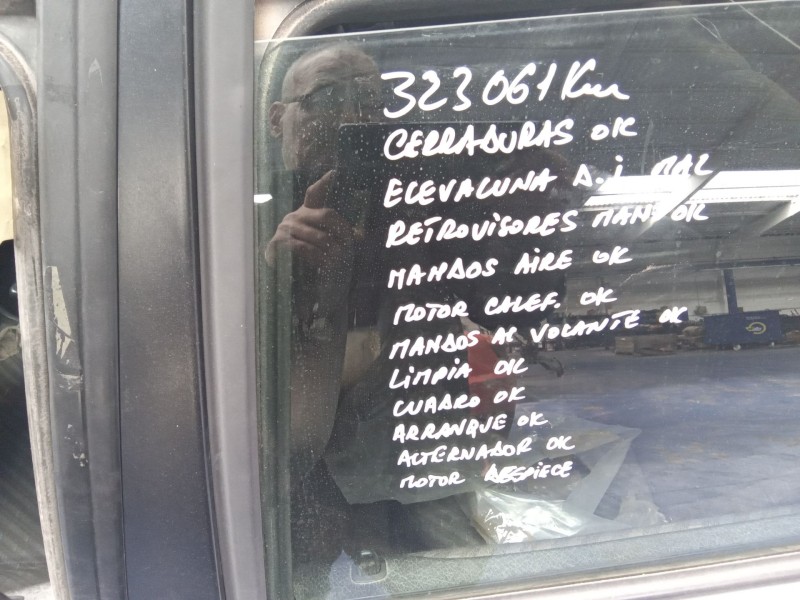 323061 Km
CERRADURAS OK
ELEVALUNA D.I. MAL
RETROVISORES MAN. OK
MANDOS AIRE OK
MOTOR CALEF. OK
MANDOS AL VOLANTE OK
LIMPIA OK
CUADRO OK
ARRANQUE OK
ALTERNADOR OK
MOTOR DESPIECE